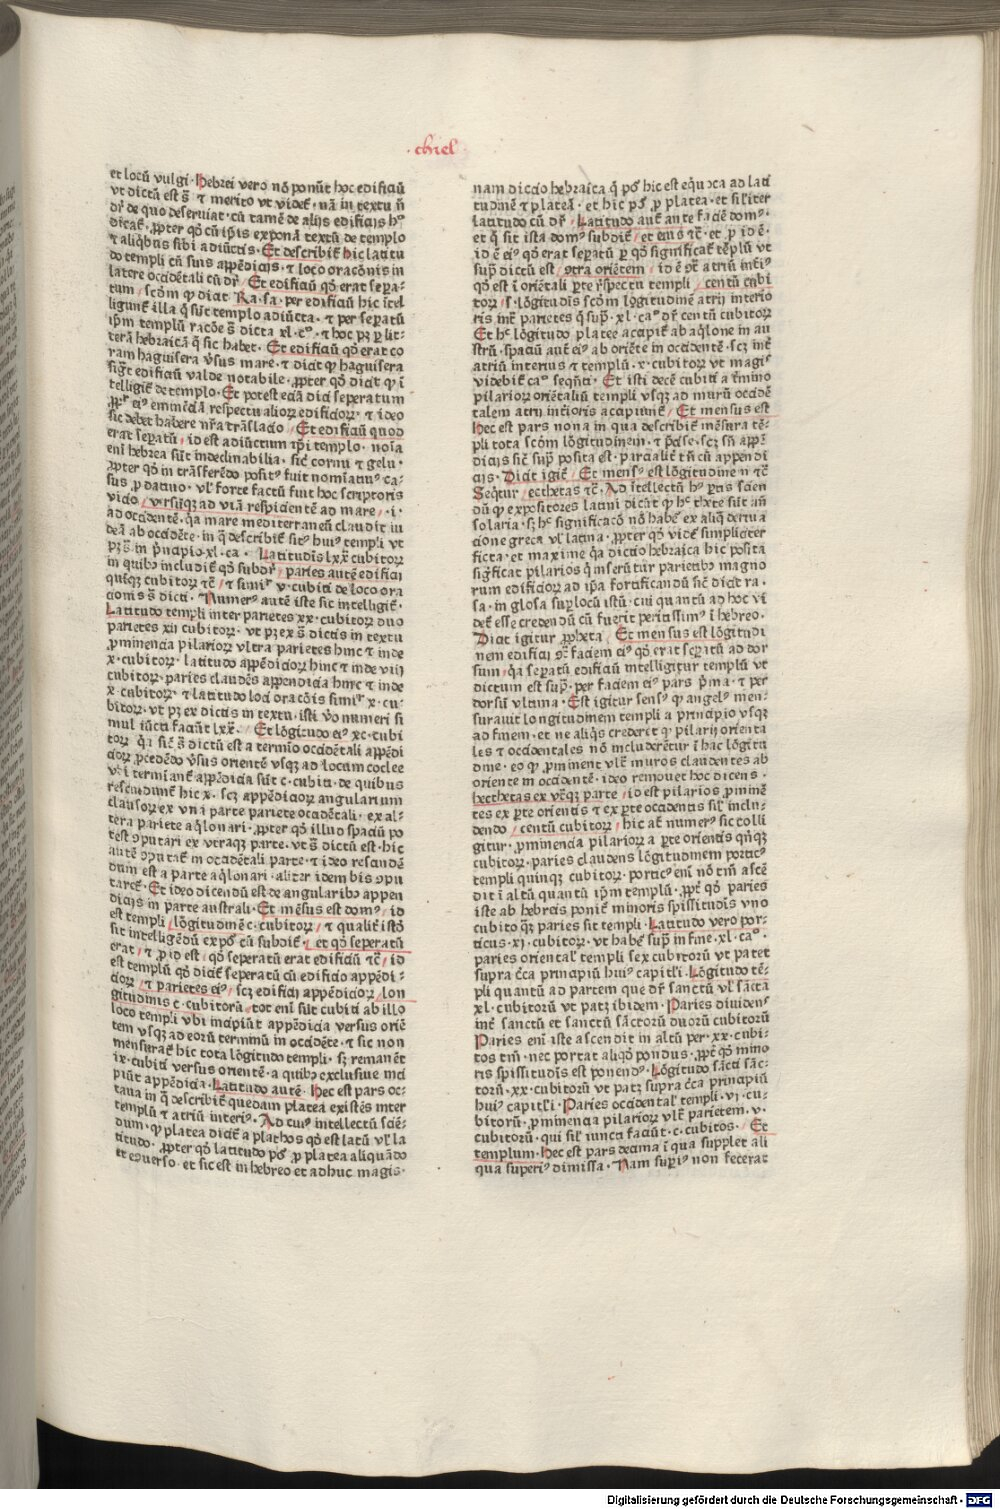 ·chiel·
et locū vulgi· Hebrei vero nō ponūt hoc edificiū
vt dictū est s̄ ⁊ merito vt videt̄· nā in textu n̄
dr̄ de quo deseruiat· cū tamē de alijs edificijs hͦ
dicat̄· ꝓpter qḋ cū ip̄is exponā textū de templo
⁊ aliqbus sibi adiūctis· Et describit̄ hic latitu
do templi cū suis appēdicijs· ⁊ loco oracōnis in
latere occidētali cū dr̄/ Et edificiū qḋ erat sepa⸗
tum/ scōm ꝙ dicit Ra·sa· per edificiū hic ītel
ligunt̄ illa q̄ sūt templo adiūcta· ⁊ per sepatū
ip̄m templū racōe s̄ dicta xl· cͦ· ⁊ hoc pꝫ ꝑ lit⸗
terā hebraicā q̄ sic habet· Et edificiū qḋ erat co
ram haguisera v̄sus mare· ⁊ dicit ꝙ haguisera
sigt̄ edificiū valde notabile· ꝓpter qḋ dicit ꝙ ī
telligit̄ de templo· Et potest eciā dici seperatum
ꝓpt̄ eiꝰ emīēciā respectu alioꝝ edificioꝝ· ⁊ ideo
sic debet habere nr̄a trāslacio/ Et edificiū quod
erat sepatū/ id est adiūctum ip̄i templo· noīa
enī hebrea sūt indeclinabilia· sic̄ cornu ⁊ gelu·
ꝓpter qḋ in trāsferēdo positꝰ fuit nomīatiuꝰ ca⸗
sus ꝓ datiuo· vl̄ forte factū fuit hoc scriptoris
vicio/ v̄rsūqꝫ ad viā respicientē ad mare/ ·i·
ad occidentē· qa mare mediterraneū claudit iu
deā ab occidēte· in q̄ describit̄ sitꝰ huiꝰ templi vt
pꝫ s̄ in p̄ncipio·xl·ca· Latitudīs lxx̄ cubitoꝝ
in quibꝰ includit̄ qḋ subdr̄/ paries autē edificij
quīqꝫ cubitoꝝ ⁊c̄/ ⁊ simiꝉ v· cubiti de loco ora
cionis s̄ dicti· Numerꝰ autē iste sic intelligit̄·
Latitudo templi inter parietes xx· cubitoꝝ duo
parietes xij cubitoꝝ· vt pꝫ ex s̄ dictis in textu
ꝓminencia pilarioꝝ vltra parietes hinc ⁊ inde
x· cubitoꝝ· latitudo appēdicioꝝ hinc ⁊ inde viij
cubitoꝝ· paries claudēs appendicia hinc ⁊ inde
x· cubitoꝝ· ⁊ latitudo loci oracōis simiꝉ x· cu⸗
bitoꝝ· vt pꝫ ex dictis in textu· isti v̄o numeri si
mul iūcti faciūt lxx̄· /Et lōgitudo eiꝰ xc· cubi
toꝝ qa sic̄ s̄ dictū est a termīo occidētali appēdi
cioꝝ ꝓcedēdo v̄sus orientē vsqꝫ ad locum coclee
vbi termīant̄ appēdicia sūt c· cubiti· de quibus
rescindunt̄ hic x· scꝫ appēdicioꝝ angularium
clausoꝝ ex vna parte pariete occidētali· ex al⸗
tera pariete aq̄lonari· ꝓpter qḋ illud spaciū po
test ꝯputari ex vtraqꝫ parte· vt s̄ dictū est· hic
autē ꝯputat̄ in occidētali parte· ⁊ ideo rescindē
dum est a parte aq̄lonari· aliter idem bis ꝯpu
taret̄· Et ideo dicendū est de angularibꝰ appen
dicijs in parte australi· Et mēsus est domꝰ/ id
est templi/ lōgitudinē c· cubitoꝝ/ ⁊ qualit̄ istḋ
sit intelligēdū expoꝰ cū subdit̄· /et qḋ seperatū
erat/ ⁊ ꝓ id est/ qḋ seperatū erat edificiū ⁊c̄/ id
est templū qḋ dicit̄ seperatū cū edificio appēdi⸗
cioꝝ/ ⁊ parietes eiꝰ/ scꝫ edificij appēdicioꝝ/ lon
gitudinis c· cubitorū/ tot enī sūt cubiti ab illo
loco templi vbi incipiūt appēdicia versus oriē
tem vsqꝫ ad eorū terminū in occidēte· ⁊ sic non
mensurat̄ hic tota lōgitudo templi· sꝫ remanēt
ix· cubiti versus orientē· a quibꝫ exclusiue inci
piūt appēdicia· Latitudo autē· Hec est pars oc⸗
taua in q̄ describit̄ quedam platea existēs inter
templū ⁊ atriū interiꝰ· Ad cuiꝰ intellectū sciē⸗
dum· ꝙ platea dicit̄ a plathos qḋ est latū vl̄ la
titudo· ꝓpter qḋ latitudo pōt ꝓ platea aliquādo
et eꝯuerso· et sic est in hebreo et adhuc magis·
nam diccio hebraica q̄ poͭ hic est eq̄uoca ad lati
tudinē ⁊ plateā· et hic poͭ ꝓ platea· et sil̄iter
latitudo cū dr̄· /Latitudo aut̄ ante faciē domꝰ·
et q̄ sit ista domꝰ subdit̄/ et eius ⁊c̄· et ꝓ id ē·
id ē eiꝰ qḋ erat sepatū ꝑ qḋ significat̄ tēplū vt
sup̄ dictū est/ ꝯtra oriētem/ id ē ꝯt̄ atriū int̄iꝰ
qḋ est ī oriētali ꝑte r̄spectu templi/ centū cubi
toꝝ/ s· lōgitudīs scōm lōgitudinē atrij interio
ris int̄ parietes q̄ sup̄· xl· caͦ dr̄ centū cubitoꝝ
Et hͨ lōgitudo platee accipit̄ ab aq̄lone in au
strū· spaciū aut̄ eiꝰ ab oriēte in occidentē· scꝫ int̄
atriū interius ⁊ templū· x· cubitoꝝ vt magꝭ
videbit̄ caͦ seqn̄ti· Et isti decē cubiti a t̄mino
pilarioꝝ oriētaliū templi vsqꝫ ad murū occidē
talem atrij int̄ioris accipiunt̄/ Et mensus est
Hec est pars nona in qua describit̄ mēsura tē⸗
pli tota scōm lōgitudinem· ⁊ p̄cise· scꝫ sn̄ appē
dicijs sic̄ sup̄ posita est· ꝑticalit̄ tn̄ cū appendi
cijs· Dicit igit̄/ Et mensꝰ est lōgitudinē ⁊ ⁊c̄
Seq̄tur/ ecthetas ⁊c̄· Ad ītellectū hꝰ ꝑtis scien
dū ꝙ expositores latini dicūt ꝙ hͨ t̄hcte sūt an̄
solaria· sꝫ hͨ significacō nō habet̄ ex aliq̄ deriua
cione greca vl̄ latina· ꝓpter qḋ videt̄ simpliciter
ficta· et maxime qa diccio hebraica hic posita
sig̅ficat pilarios q̄ inserūtur parietibꝫ magno
rum edificioꝝ ad ip̄a fortificandū sic̄ dicit ra·
sa· in glosa supꝉ locū istū· cui quantū ad hoc vi
det̄ esse credendū cū fuerit peritissimꝰ ī hebreo·
Dicit igitur ꝓpheta/ Et mensus est lōgitudi
nem edificij ꝯt̄ faciem eiꝰ qḋ erat sepatū ad dor
sum/ qa sepatū edificiū intelligitur templū vt
dictum est sup̄· per faciem eiꝰ pars p̄ma· ⁊ per
dorsū vltima· Est igitur sensꝰ ꝙ angelꝰ men⸗
surauit longitudinem templi a principio vsqꝫ
ad finem· et ne aliqs crederet ꝙ pilarij orienta
les ⁊ occidentales nō includerētur ī hac lōgitu
dine· eo ꝙ ꝓminent vlt̄ muros claudentes ab
oriente in occidentē· ideo remouet hoc dicens·
hecthetas ex vt̄qꝫ parte/ id est pilarios ꝓminē
tes ex ꝑte orientis ⁊ ex ꝑte occidentis sil̄ inclu⸗
dendo/ centū cubitoꝝ/ hic at̄ numerꝰ sic colli
gitur· ꝓminencia pilarioꝝ a ꝑte orientis qn̄qꝫ
cubitoꝝ· paries claudens lōgitudinem porticꝰ
templi quinqꝫ cubitoꝝ· porticꝰ enī nō tm̄ ascē
dit ī altū quantū ip̄m templū· ꝓpt̄ qḋ paries
iste ab hebreis ponit̄ minoris spissitudīs vno
cubito q̄ꝫ paries sit templi· Latitudo vero por⸗
ticus· xj· cubitoꝝ· vt habet̄ sup̄ in fine· xl· caͦ·
paries orientalꝭ templi sex cubitorū vt patet
supra c̄ca principiū huiꝰ capitl̄i· Lōgitudo tē⸗
pli quantū ad partem que dr̄ sanctū vl̄ sāctā
xl· cubitorū vt patꝫ ibidem· Paries diuidenꝭ
int̄ sanctū et sanctū sāctorū duorū cubitorū
Paries enī iste ascendit in altū per· xx· cubi⸗
tos tm̄· nec portat aliqḋ pondus· ꝓpt̄ qḋ mino
ris spissitudīs est ponendꝰ· Lōgitudo sācti sāc⸗
torū· xx· cubitorū vt patꝫ supra c̄ca principiū
huiꝰ capitl̄i· Paries occidentalꝭ templi· vi· cu⸗
bitorū· ꝓminencia pilarioꝝ vlt̄ parietem· v·
cubitorū· qui sil̄ iuncti faciūt· c· cubitos· /Et
templum· Hec est pars decima ī qua supplet ali
qua superiꝰ dimissa· Nam supiꝰ non fecerat
Digitalisierung gefördert durch die Deutsche Forschungsgemeinschaft - DFG